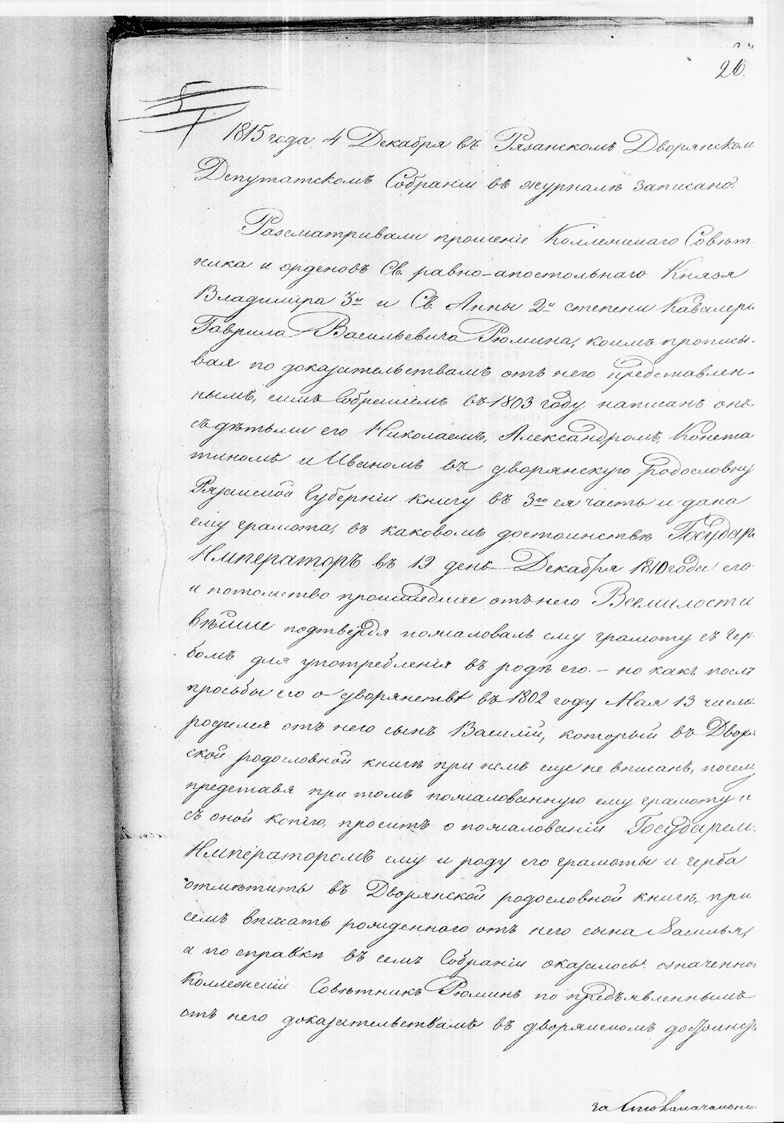 26.
1815 года 4 Декабря въ Рязанскомъ Дворянском
Депутатскомъ Собраніи въ журналѣ записано:
Разсматривали прошеніе Коллежскаго Совѣт
ника и орденовъ Св. равно-апостольнаго Князя
Владимира 3й и Св. Анны 2й степени Кавалера
Гаврила Васильевича Рюмина, коимъ прописы-
вая по доказательствамъ отъ него представлен-
нымъ, симъ Собраніемъ въ 1803 году написанъ онъ
съ дѣтьми его Николаемъ, Александромъ, Конста
тиномъ и Иваномъ въ дворянскую родословну
Рязанской Губерніи книгу въ 3ю ея часть и дана
ему грамота, въ каковомъ достоинствѣ Государ
Императоръ въ 12 день Декабря 1810 года его
и потомство происшедшее отъ него Всемилости
вѣйше подтвердя пожаловалъ ему грамоту съ гер-
бомъ для употребленія въ родѣ его. – но какъ послѣ
просьбы его о дворянствѣ въ 1802 году Мая 13 числа
родился отъ него сынъ Василій, который въ Двор
ской родословной книгѣ при немъ еще не вписанъ, посему
представя при томъ пожалованную ему грамоту и
съ оной копію, проситъ о пожалованіи Государем
Императоромъ ему и роду его грамоты и герба
отмѣтить въ Дворянской родословной книгѣ, при
семъ вписать рожденнаго отъ него сына Василья,
а по справкѣ въ семъ Собраніи оказалось: означенно
Коллежскій Совѣтникъ Рюминъ по предъявленнымъ
отъ него доказательствамъ въ дворянскомъ достоинст
за Столоначальни